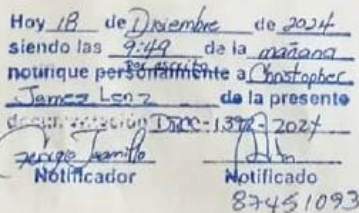 Hoy 18 de Diciembre de 2024
siendo las 9:49 de la mañana
notifique personalmente a Christopher
Por escrito
James Lenz de la presente
documentación DRCC-1392-2024
Sergio Jaramillo
Notificador Notificado
87451093